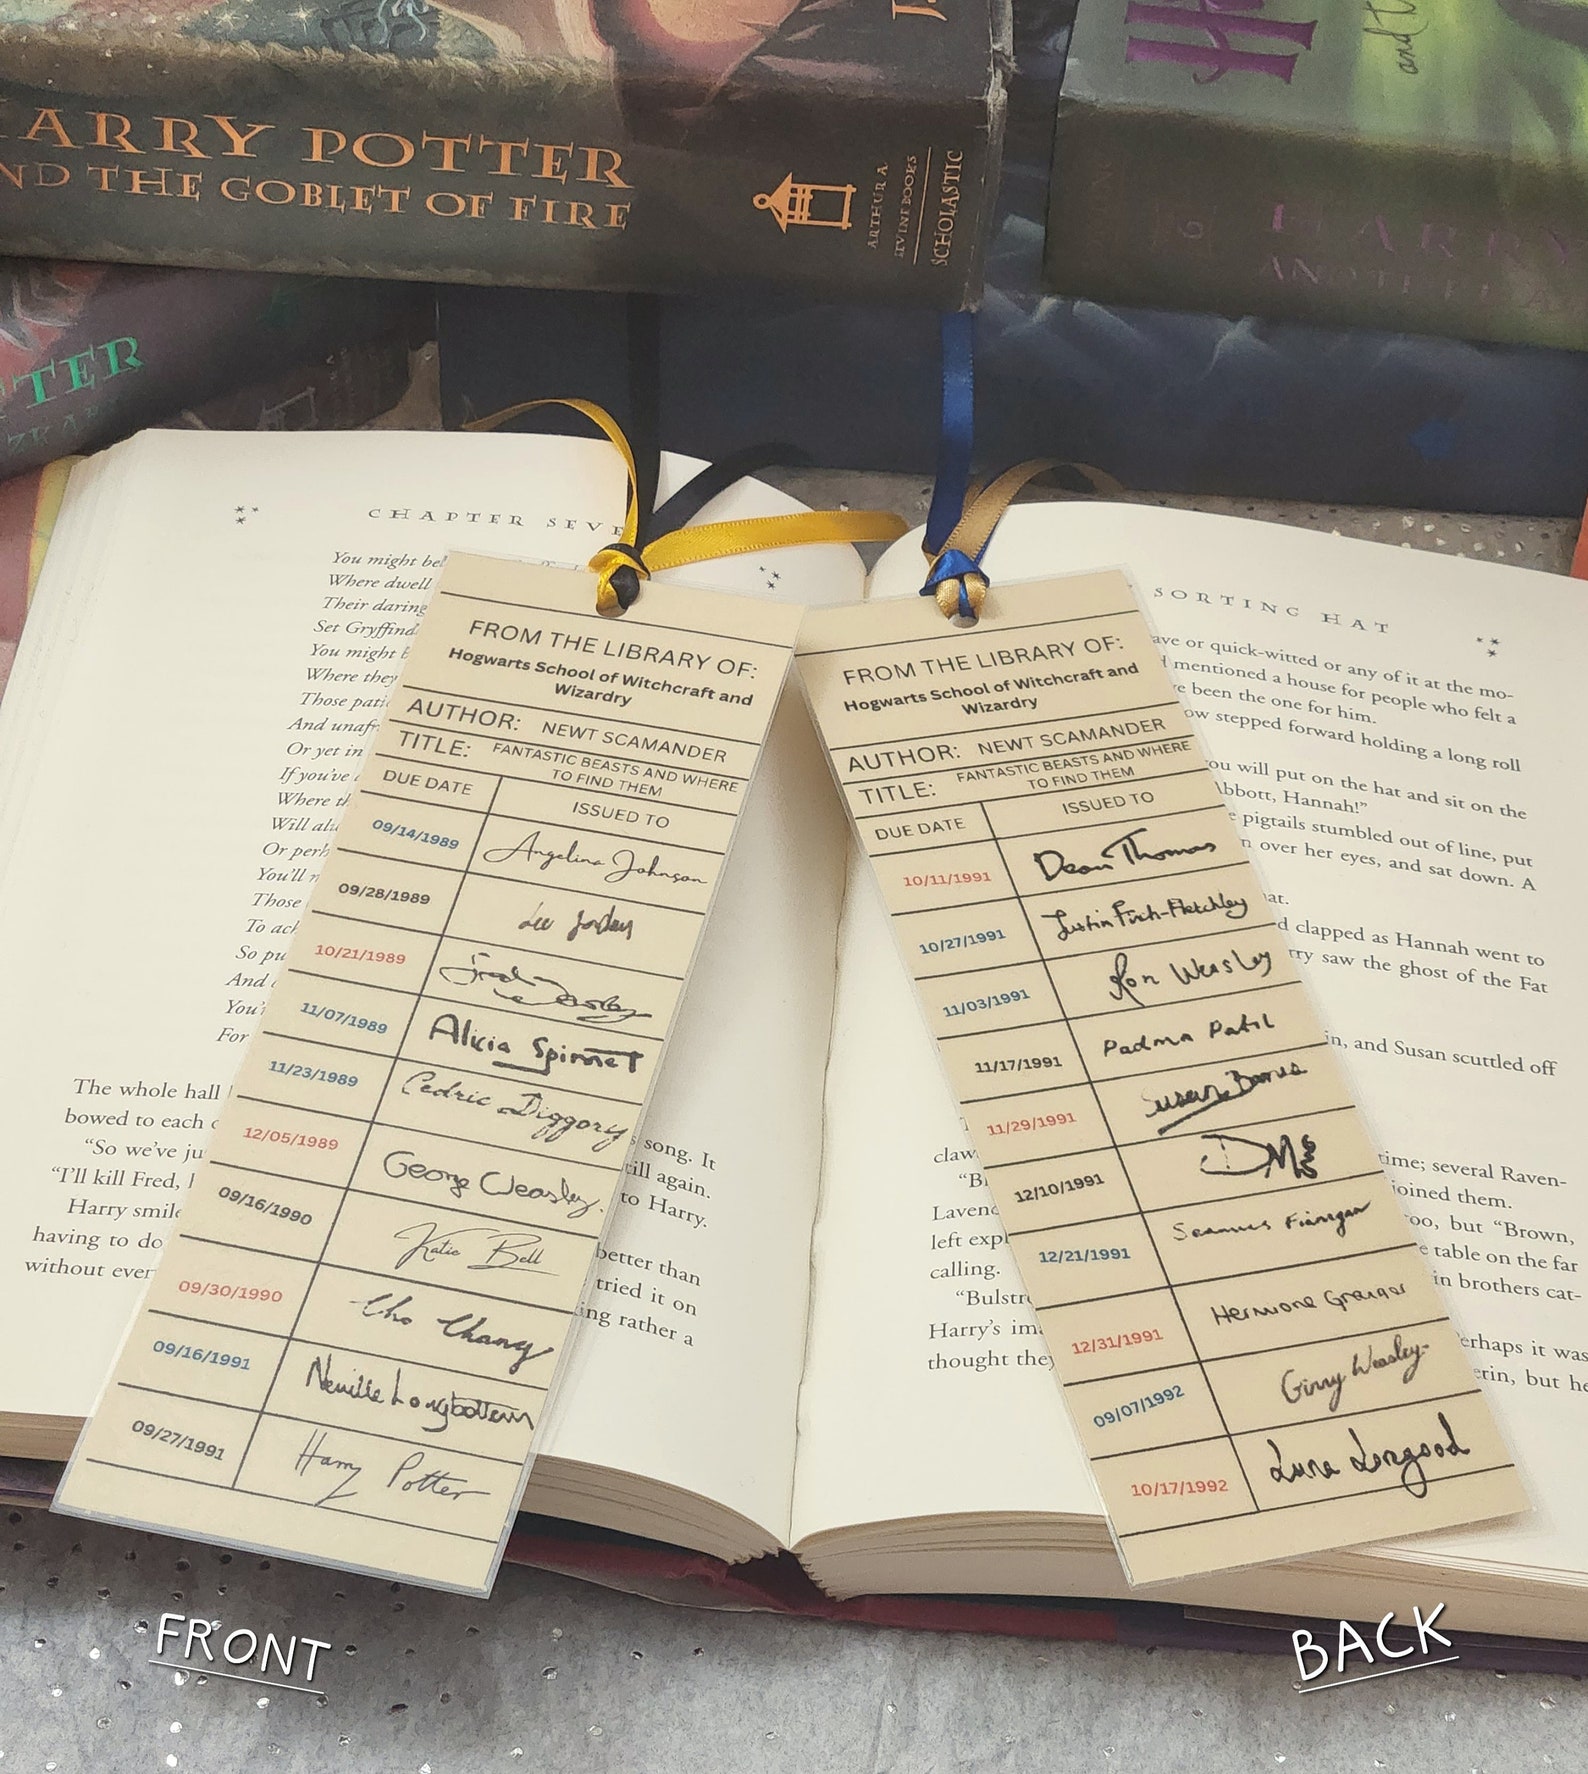 ARRY POTTER
ND THE GOBLET OF FIRE
ARTHUR A
LEVINE BOOKS
SCHOLASTIC
J.
H
and t
6
HARRY
TTER
ZKA
CHAPTER SEVE
You might bel
Where dwell
Their daring
Set Gryffind
You might b
Where they
Those pati
And unafr
Or yet in
If you've
Where th
Will alw
Or perh
You'll m
Those
To ach
So pu
And
You'
For
The whole hall
bowed to each
"So we've ju
"I'll kill Fred,
Harry smile
having to do
without ever
song. It
till again.
to Harry.
better than
tried it on
ing rather a
FROM THE LIBRARY OF:
Hogwarts School of Witchcraft and
Wizardry
AUTHOR: NEWT SCAMANDER
TITLE: FANTASTIC BEASTS AND WHERE
TO FIND THEM
DUE DATE ISSUED TO
09/14/1989 Angelina Johnson
09/28/1989 Lee Jordan
10/21/1989 Fred Weasley
11/07/1989 Alicia Spinnet
11/23/1989 Cedric Diggory
12/05/1989 George Weasley
09/16/1990 Katie Bell
09/30/1990 Cho Chang
09/16/1991 Neville Longbottom
09/27/1991 Harry Potter
FROM THE LIBRARY OF:
Hogwarts School of Witchcraft and
Wizardry
AUTHOR: NEWT SCAMANDER
TITLE: FANTASTIC BEASTS AND WHERE
TO FIND THEM
DUE DATE ISSUED TO
10/11/1991 Dean Thomas
10/27/1991 Justin Finch-Fletchley
11/03/1991 Ron Weasley
11/17/1991 Padma Patil
11/29/1991 Susan Bones
12/10/1991 DM
12/21/1991 Seamus Finnigan
12/31/1991 Hermione Granger
09/07/1992 Ginny Weasley
10/17/1992 Luna Lovgood
SORTING HAT
ave or quick-witted or any of it at the mo-
mentioned a house for people who felt a
e been the one for him.
ow stepped forward holding a long roll
ou will put on the hat and sit on the
bbott, Hannah!"
e pigtails stumbled out of line, put
n over her eyes, and sat down. A
at.
d clapped as Hannah went to
rry saw the ghost of the Fat
in, and Susan scuttled off
time; several Raven-
joined them.
oo, but "Brown,
e table on the far
in brothers cat-
erhaps it was
erin, but he
claw
"B
Lavend
left expl
calling.
"Bulstr
Harry's im
thought they
FRONT
BACK